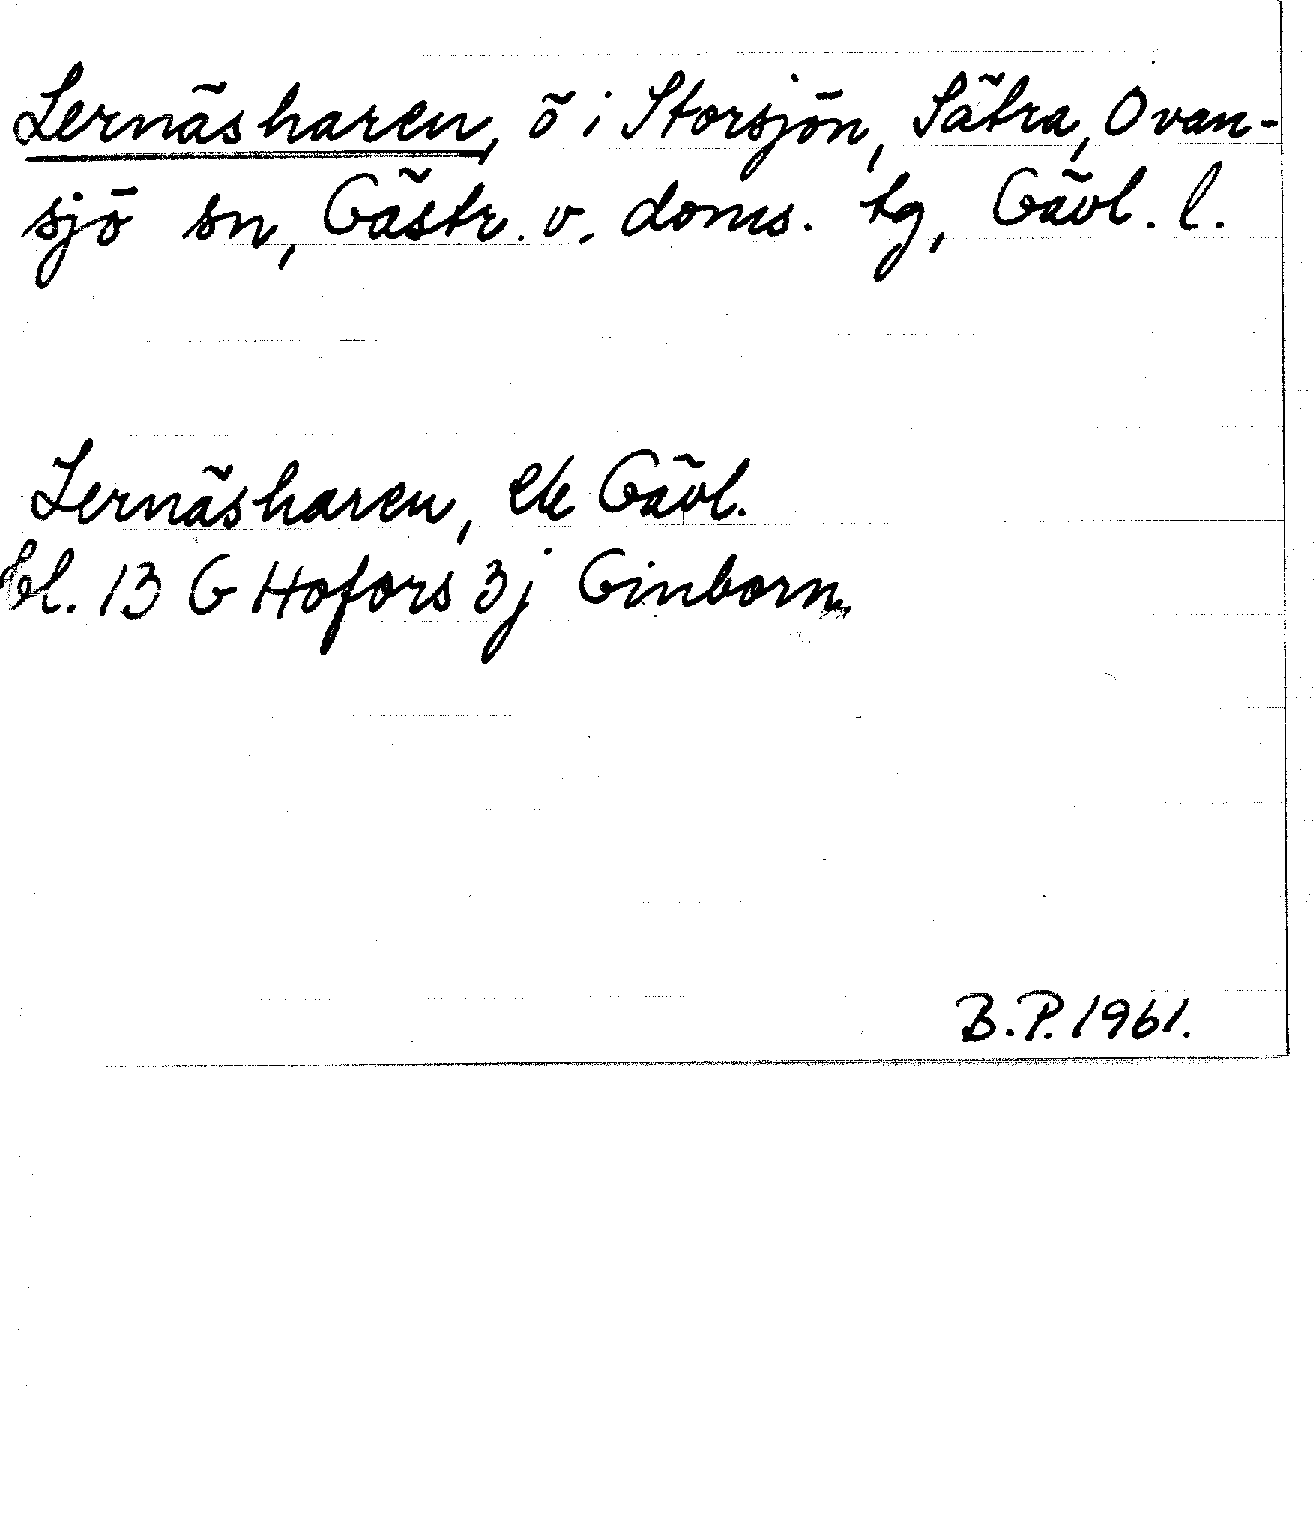 Lernäsharen, ö i Storsjön, Sätra, Ovan-
sjö sn, Gästr. v. doms. tg, Gävl. l.
Lernäsharen, ek Gävl.
bl. 13 G Hofors 3j Ginborn
B.P. 1961.